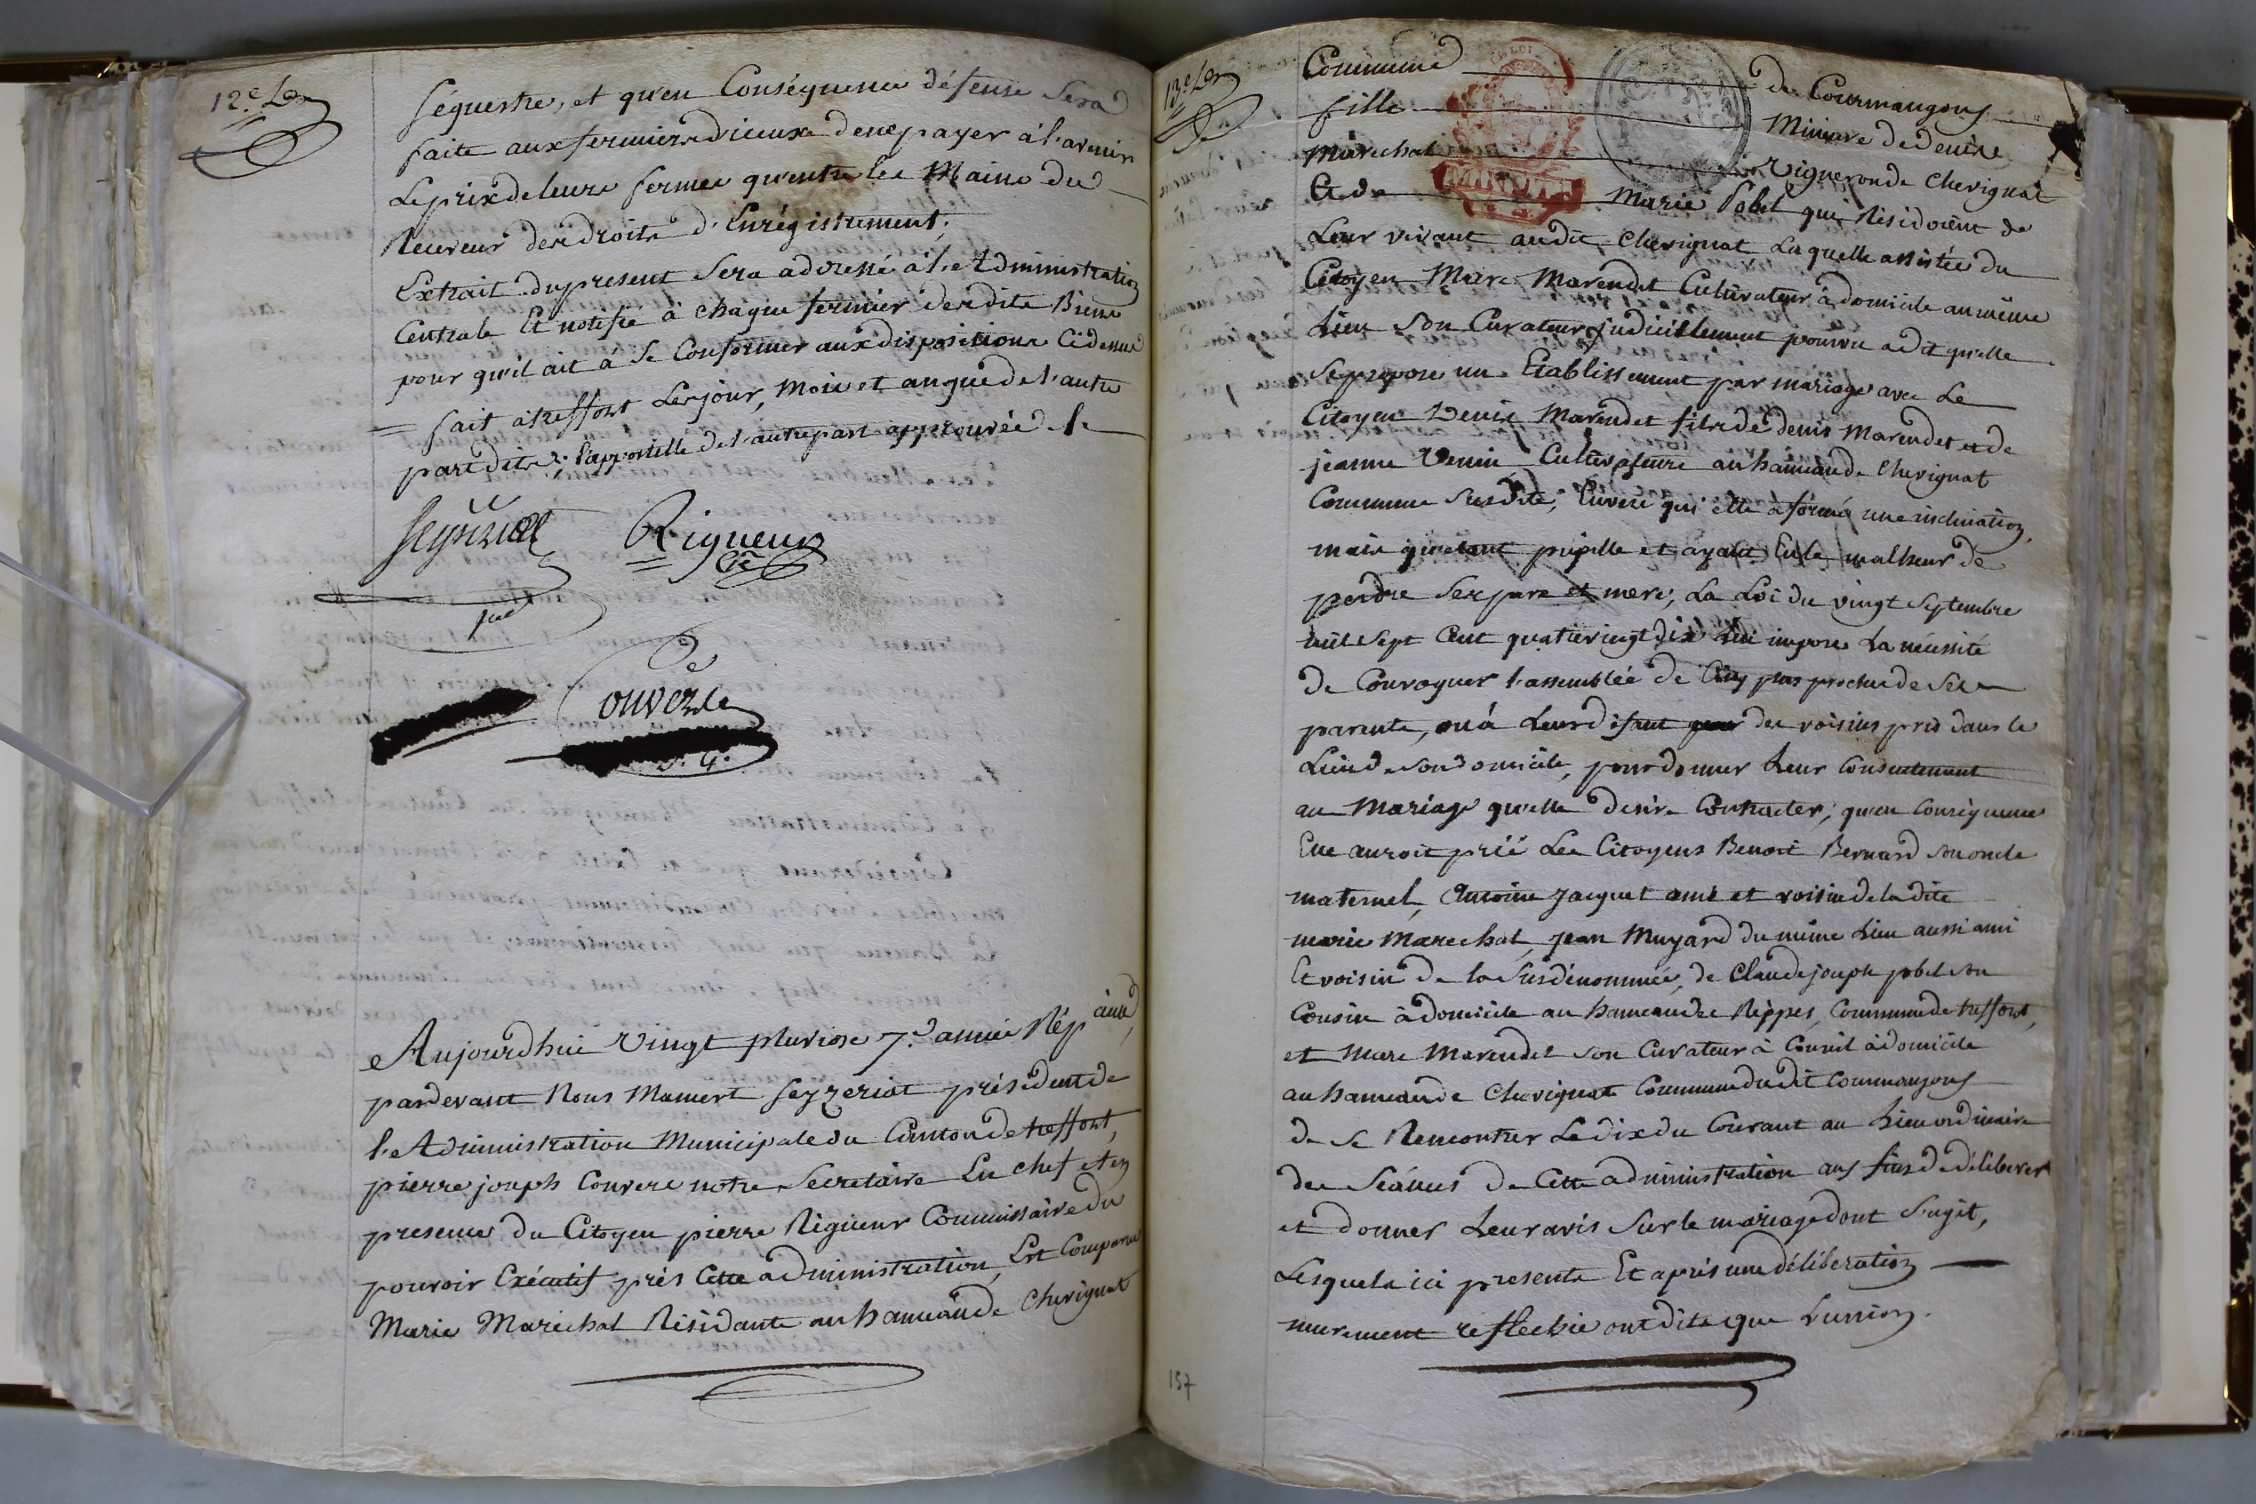 12.e
séquestre, et qu'en Conséquence défense sera
faite aux fermiers d'iceux de ne payer à l'avenir
Le prix de leurs fermes qu'entre les Mains du
Receveur des droits d'Enrégistrement;
Extrait du present sera adressé à l'Administration
Centrale Et notifié à chaque fermier desdits Biens
pour qu'il ait à se Conformer aux dispositions Cidessus
= fait à treffort Les jour, Mois et an que de l'autre
part dits; l'appostille de l'autre part approuvée
Seyzeriat Rigueur
Cre
pnt
Convers
S. G.
Aujourdhui Vingt pluviose 7.e année Répcaine,
pardevant Nous Mamert Seyzeriat président de
l'Administration Municipale du Canton de treffort,
pierre joseph Convers notre Secretaire En chef et en
presence du Citoyen pierre Rigueur Commissaire du
pouvoir Exécutif près Cette administration, Est Comparue
Marie Maréchal Résidante au hameau de Chevignat
13.e
Commune de Courmangoux
fille Mineure de denis
Maréchal Vigneron de Chevignat
Et de Marie Pobel qui Résidoient de
Leur vivant audit Chevignat Laquelle assistée du
Citoyen Marc Marendet Cultivateur à domicile au même
Lieu son Curateur judiciellement pourvu a dit qu'elle
se propose un Etablissement par mariage avec Le
Citoyen Denis Marendet fils de denis Marendet et de
jeanne Venin Cultivateurs au hameau de Chevignat
Commune Susdite; Envers qui elle a formé une inclination,
mais qu'etant pupille et ayant Eu le malheur de
perdre ses pere et mere, La Loi du vingt Septembre
mil Sept Cent quatrevingt dix lui impose La nécessité
de Convoquer l'assemblée de Cinq plus proches de ses
parents, ou à Leur défaut des voisins pris dans le
Lieu de son domicile, pour donner Leur Consentement
au Mariage qu'elle desire Contracter; qu'en Conséquence
Elle auroit prié Les Citoyens Benoit Bernard son oncle
maternel, Antoine Jacquet ami et voisin de la dite
marie Marechal, jean Muyard du même Lieu aussi ami
Et voisin de la Susdénommée, de Claude joseph pobel son
Cousin à domicile au hameau des Reppes, Commune de treffort,
et Marc Marendet son Curateur à Conseil à domicile
au hameau de Chevignat Commune dudit Courmangoux
de se Rencontrer Le dix du Courant au Lieu ordinaire
des Séances de Cette administration aux fins de délibérer
et donner Leur avis Sur le mariage dont S'agit,
Lesquels ici presents Et après une délibération
murement reflechie ont dits que L'union
157